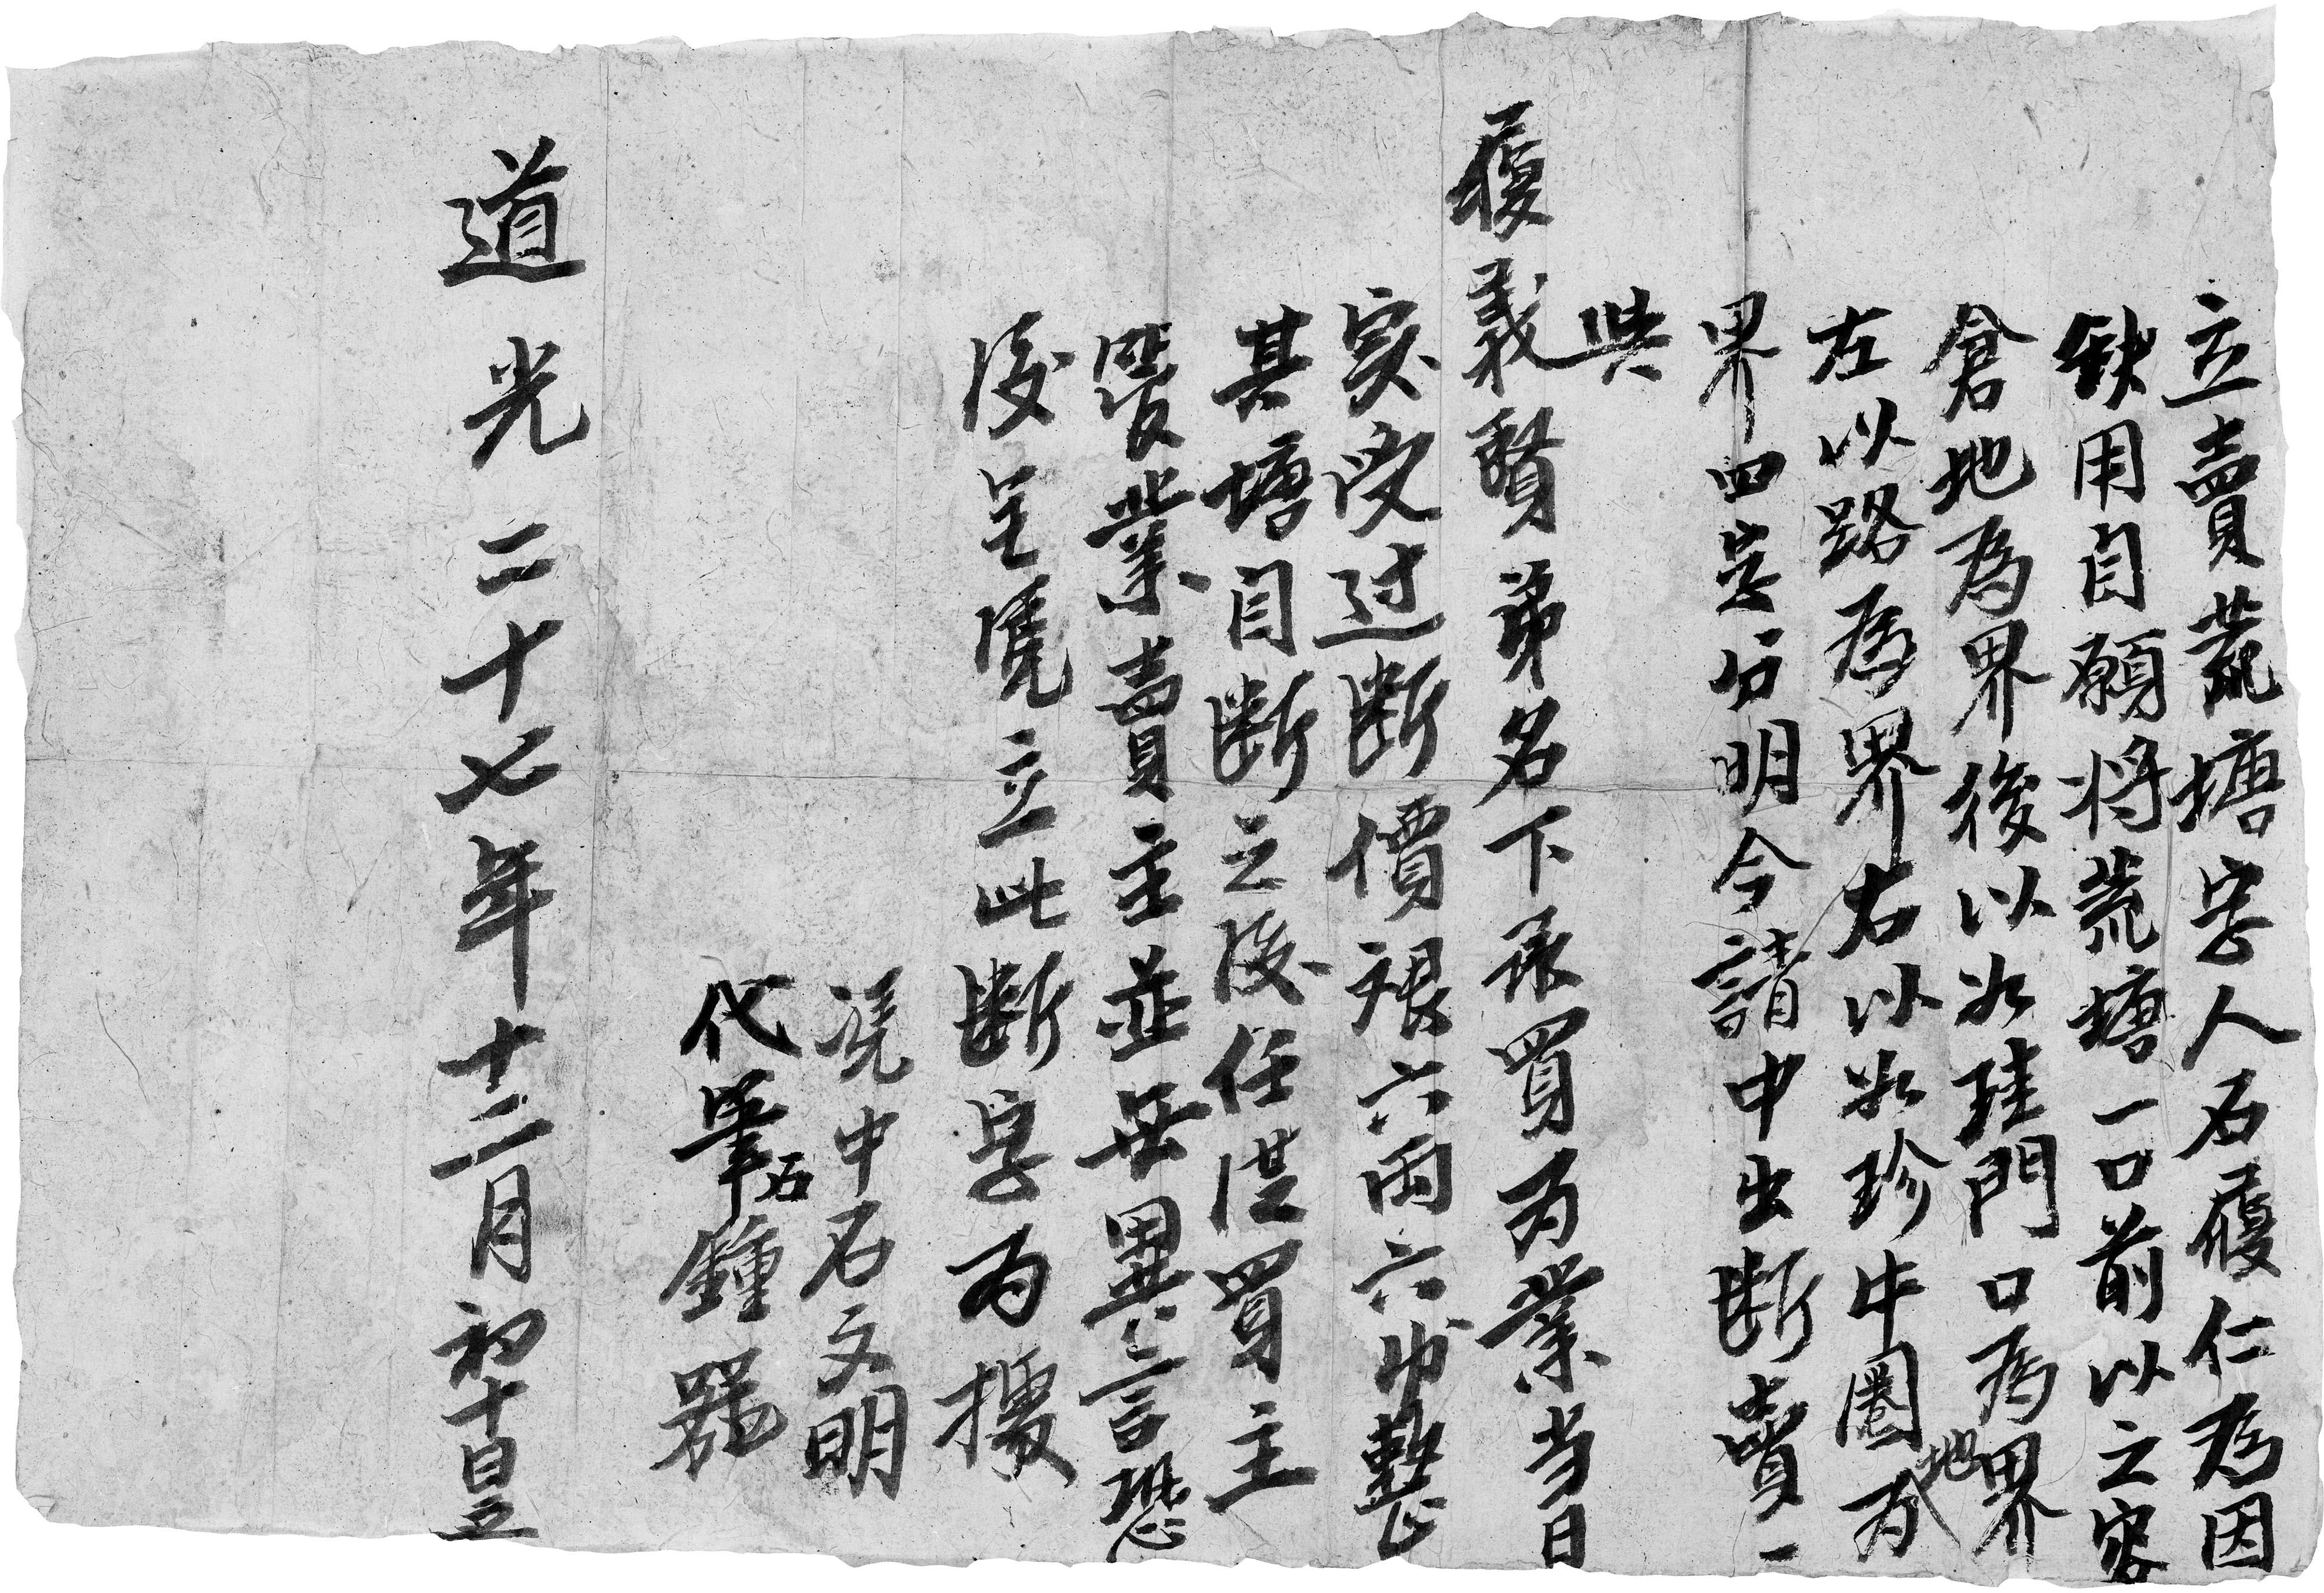 立賣荒塘字人石履仁為因
缺用自願将荒塘一口前以之容
倉地為界後以必珪門口為界
左以路為界右以必珍牛圈地為
界四字分明今請中出断賣一
與
履義賢弟名下承買為業当日
寔受过断價銀六両六卡整
其塘自断之後任從買主
管業賣主並無異言恐
後無憑立此断字為據
凴中石文明
代筆石鐘器
道光二十七年十二月初十日立